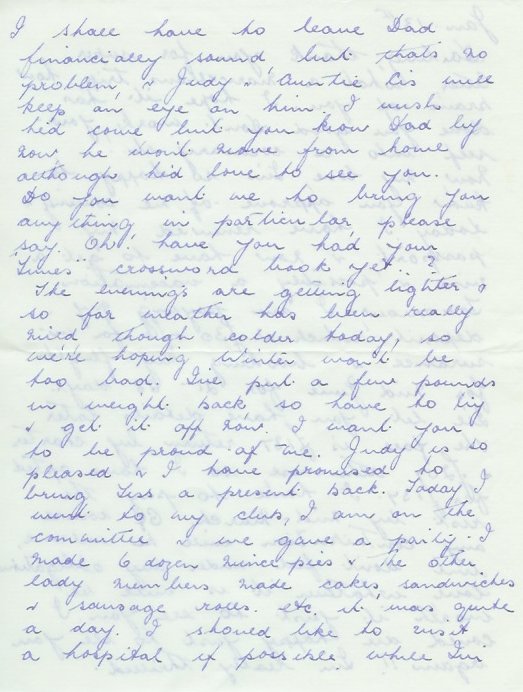 I shall have to leave Dad
financially sound, but thats no
problem, & Judy & Auntie Cis will
keep an eye on him I wish
he'd come but you know Dad by
now he won't move from home
although he'd love to see you.
Do you want me to bring you
anything in particular, please
say. Oh! have you had your
"Times" crossword book yet..?
The evenings are getting lighter &
so far weather has been really
mied though colder today, so
we're hoping Winter won't be
too bad. I've put a few pounds
in weight back so have to try
& get it off now. I want you
to be proud of me. Judy is so
pleased & I have promised to
bring Liss a present back. Today I
went to my club, I am on the
committee & we gave a party. I
made 6 dozen mince pies & the other
lady members made cakes, sandwiches
& sausage roles. etc. it was quite
a day. I should like to visit
a hospital if possible while I'm